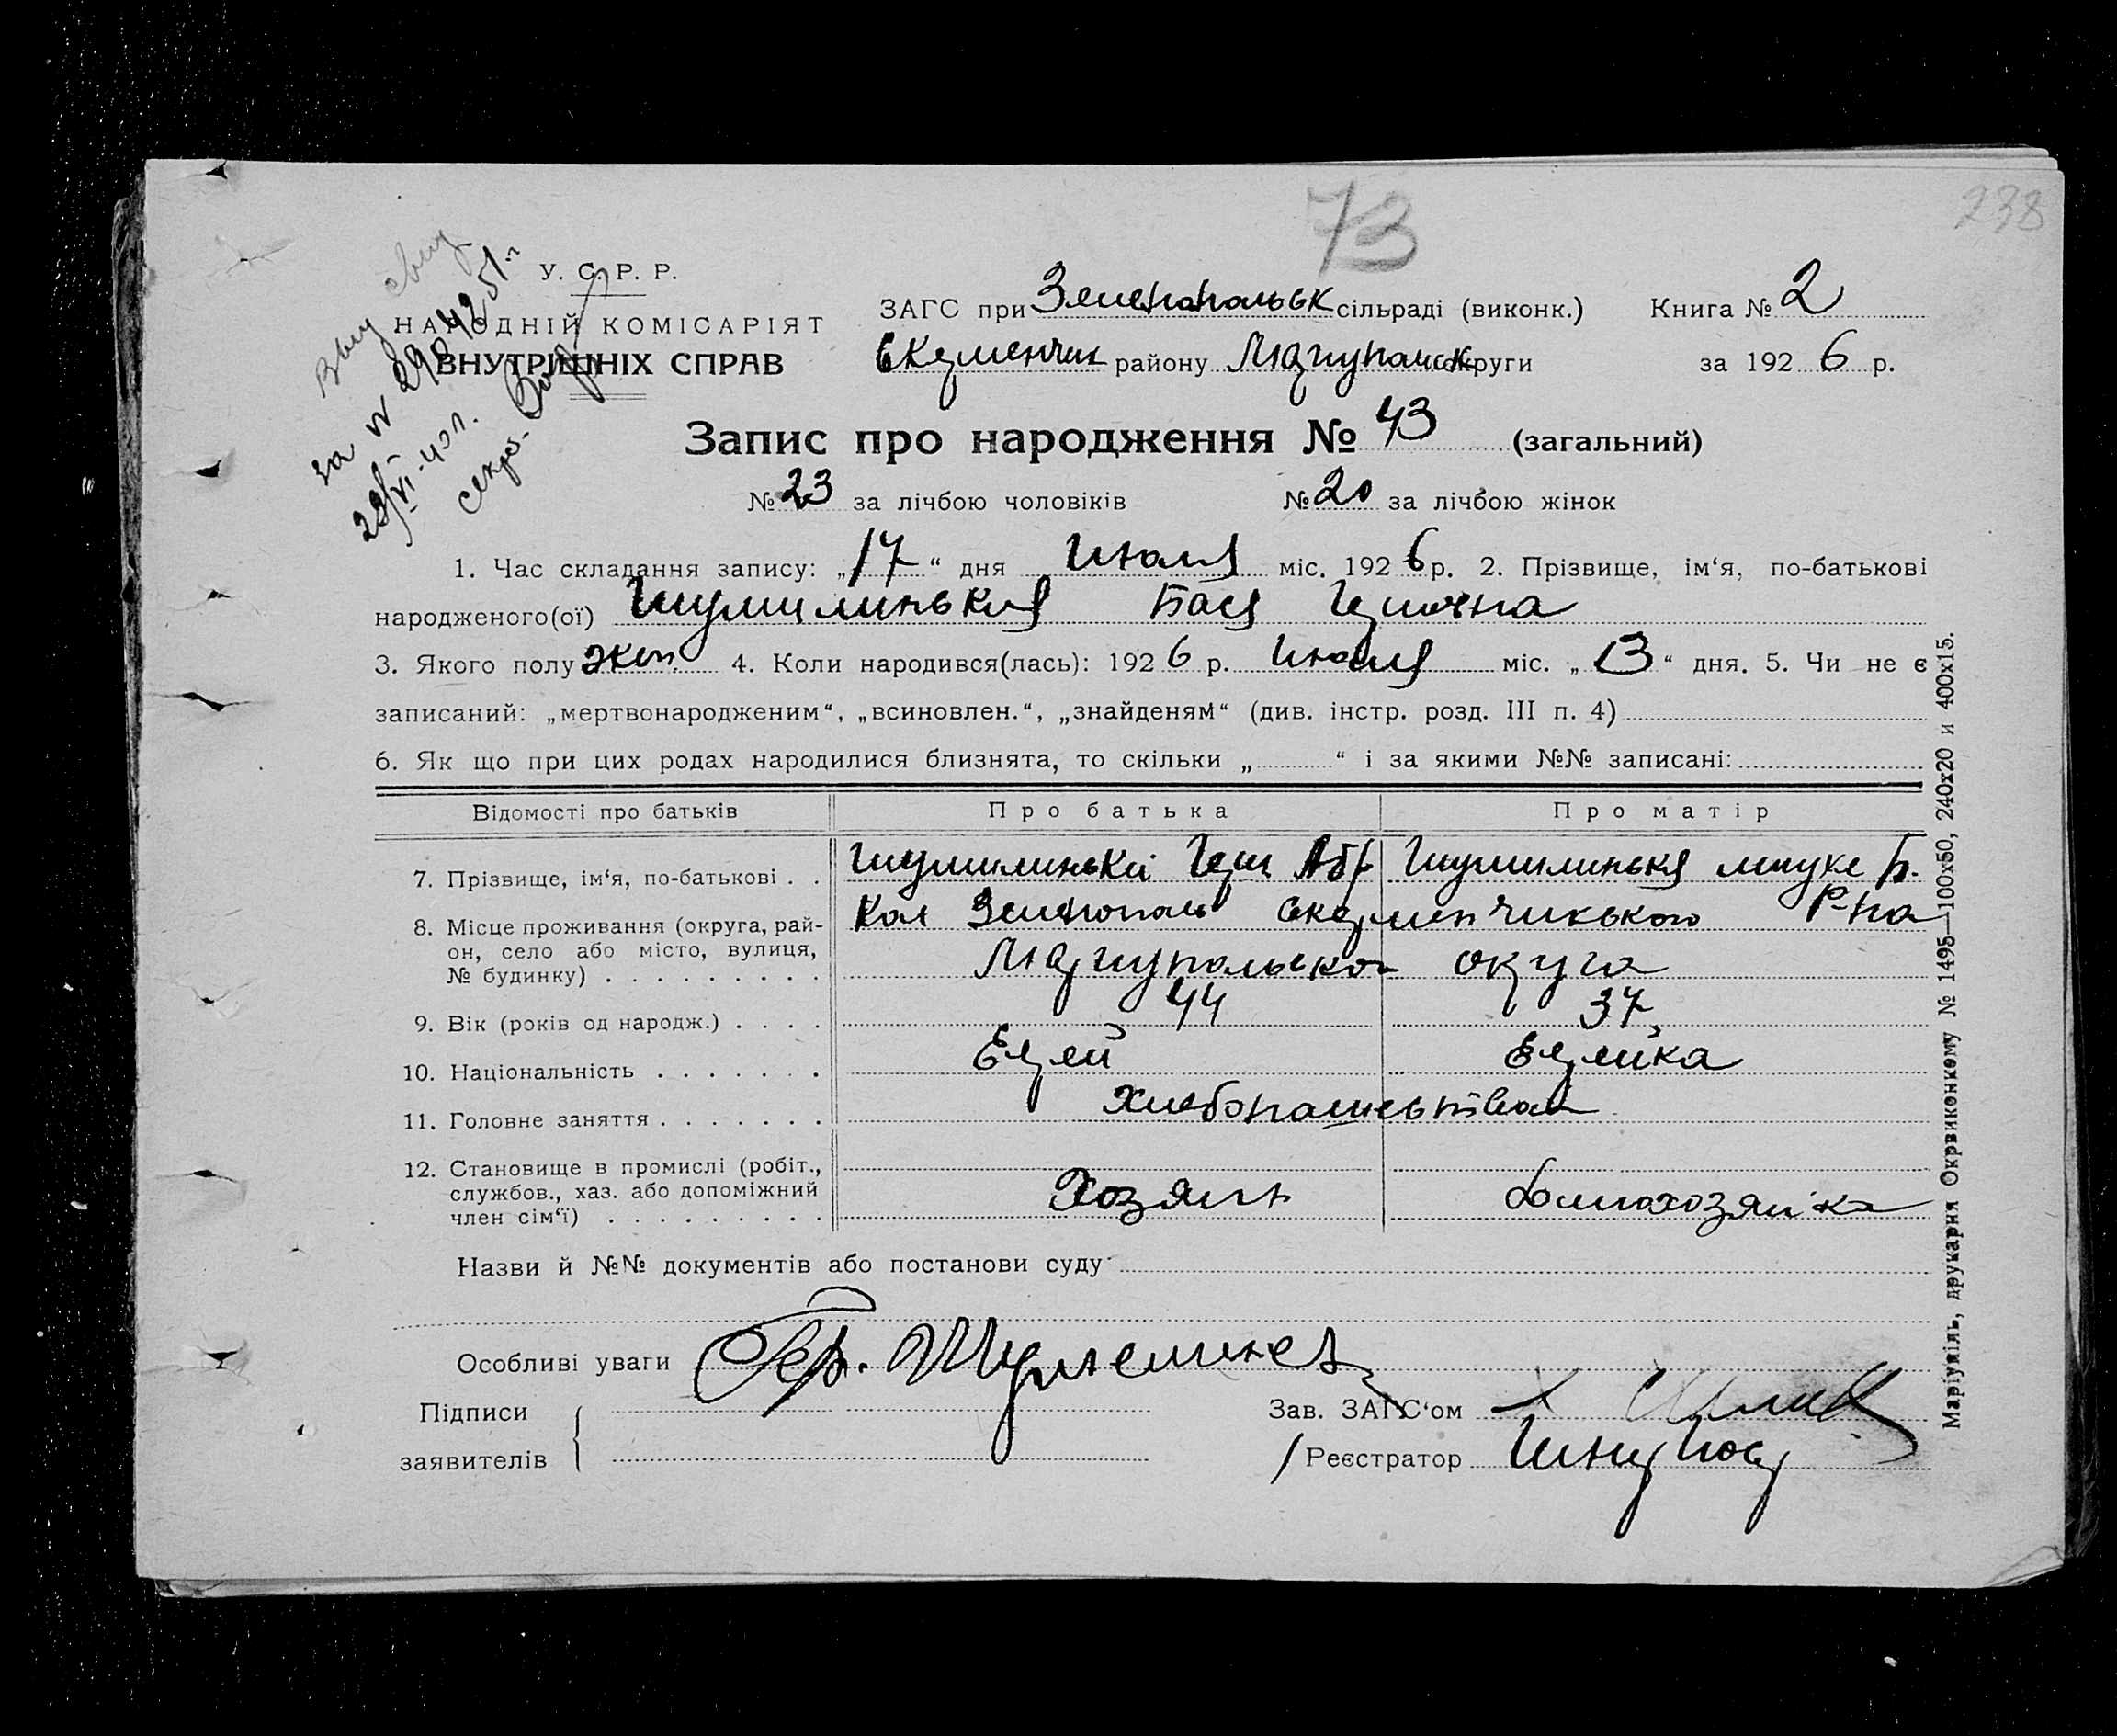 73
238
У. С. Р. Р.
НАРОДНІЙ КОМІСАРІЯТ
ВНУТРІШНІХ СПРАВ
за № 29
29/VI-40 г.
секр.
ЗАГС при Зеленопольск сільраді (виконк.) Книга № 2
району Мариупольск округи за 1926 р.
Запис про народження № 43 (загальний)
№ 23 за лічбою чоловіків № 20 за лічбою жінок
1. Час складання запису: „17“ дня Июля міс. 1926 р. 2. Прізвище, ім‘я, по-батькові
народженого(ої) Шумилинькая Бася
3. Якого полу жен. 4. Коли народився(лась): 1926 р. Июля міс. „13“ дня. 5. Чи не є
записаний: „мертвонародженим“, „всиновлен.“, „знайденям“ (див. інстр. розд. III п. 4)
6. Як що при цих родах народилися близнята, то скільки „ “ і за якими №№ записані:
Відомості про батьків Про батька Про матір
7. Прізвище, ім‘я, по-батькові . . Шумилинькй Абр Шумилинькя Б.
8. Місце проживання (округа, рай- Кол Зеленополь Р-на
он, село або місто, вулиця,
№ будинку) . . . . . . . . . Мариупольской округа
9. Вік (років од народж.) . . . . 44 37
10. Національність . . . . . . . Еврей Еврейка
11. Головне заняття . . . . . . .
12. Становище в промислі (робіт.,
службов., хаз. або допоміжний Хозяин Домохозяйка
член сім‘ї) . . . . . . . . .
Назви й №№ документів або постанови суду
Особливі уваги
Підписи Зав. ЗАГС‘ом
заявителів Реєстратор
Маріупіль, друкарня Окрвиконкому № 1495—100х50, 240х20 и 400х15.